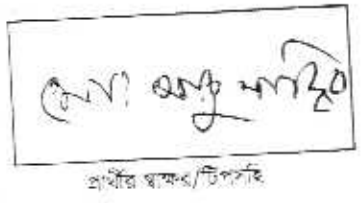 মোঃ আবু সাঈদ
প্রার্থীর স্বাক্ষর/টিপসহি